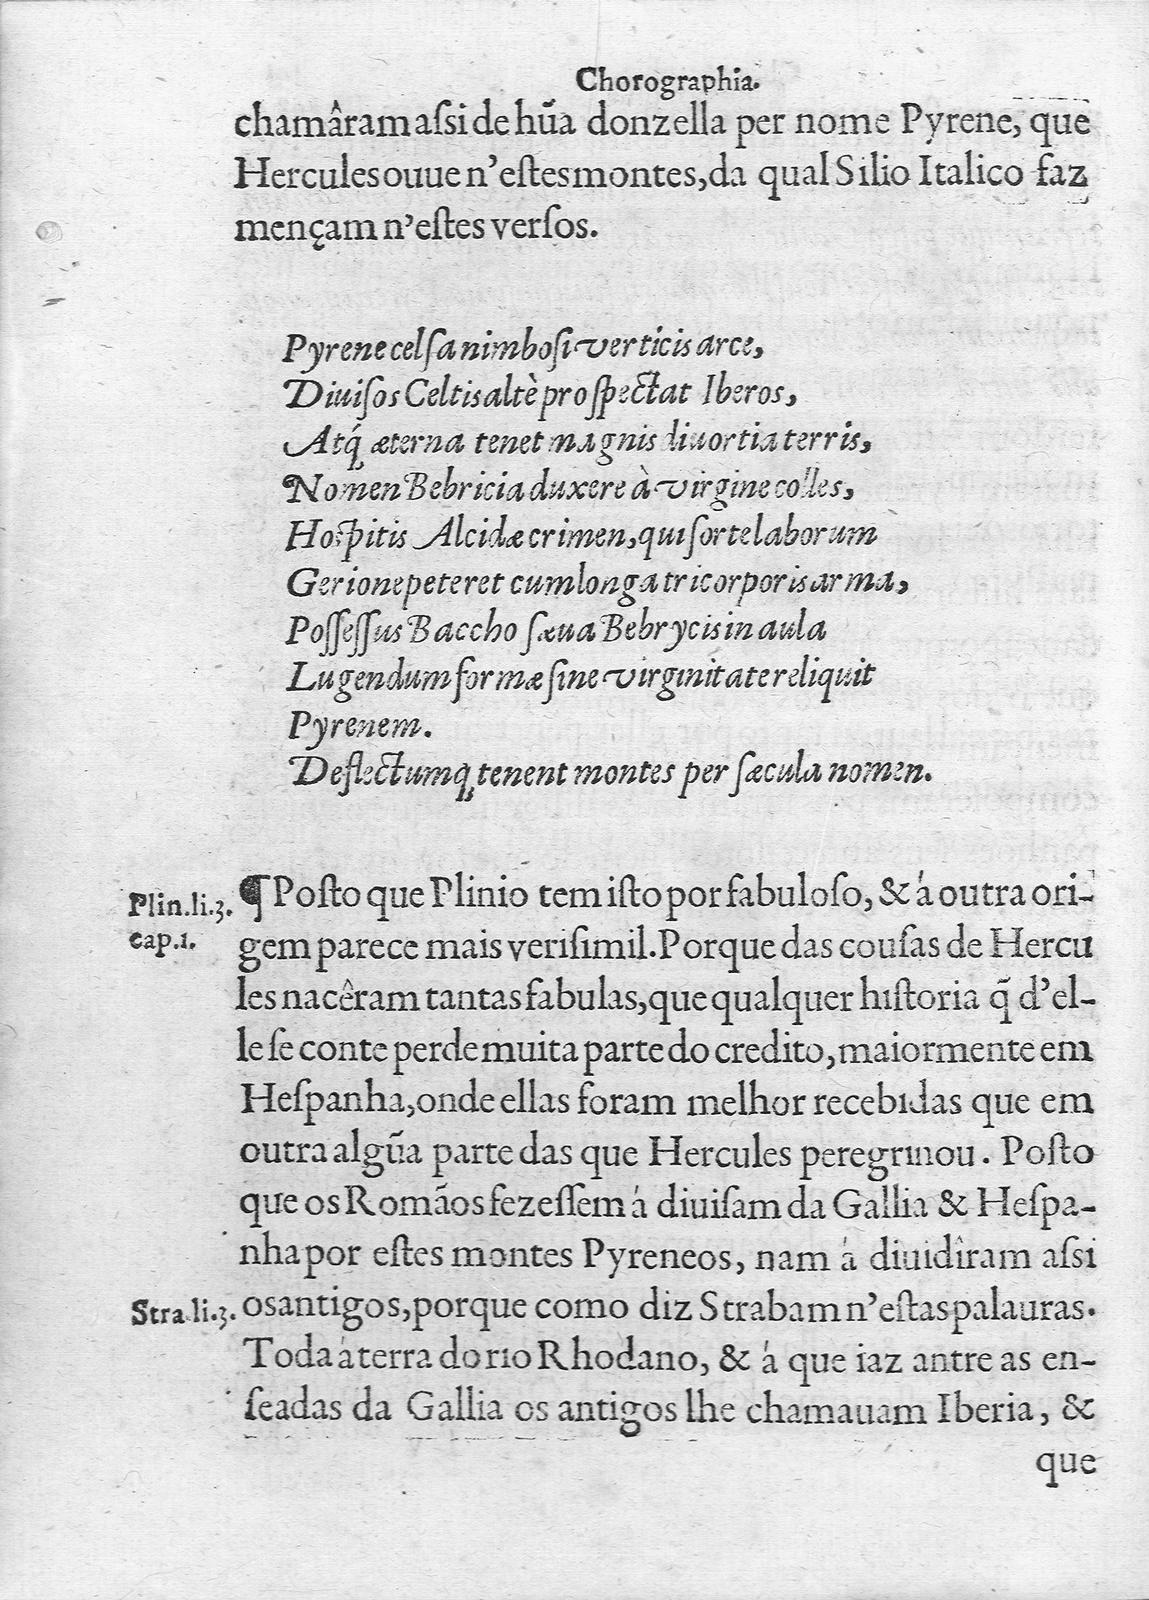 Chorographia.
chamâram aſsi de hũa donzella per nome Pyrene, que
Hercules ouue n'eſtes montes, da qual Silio Italico faz
mençam n'eſtes verſos.
Pyrene celſa nimboſi verticis arce,
Diuiſos Celtis altè proſpectat Iberos,
Atq́ æterna tenet magnis diuortia terris,
Nomen Bebricia duxere à virgine colles,
Hoſpitis Alcidæ crimen, qui ſorte laborum
Gerione peteret cum longa tricorporis arma,
Poſſeſſus Baccho ſæua Bebrycis in aula
Lugendum formæ ſine virginitate reliquit
Pyrenem.
Deflectumq́ tenent montes per ſæcula nomen.
Plin.li.3.
cap.1.
¶ Poſto que Plinio tem iſto por fabuloſo, & á outra ori-
gem parece mais veriſimil. Porque das couſas de Hercu
les nacêram tantas fabulas, que qualquer hiſtoria q̃ d'el-
le ſe conte perde muita parte do credito, maiormente em
Heſpanha, onde ellas foram melhor recebidas que em
outra algũa parte das que Hercules peregrinou. Poſto
que os Romãos fezeſſem á diuiſam da Gallia & Heſpa-
nha por eſtes montes Pyreneos, nam á diuidîram aſsi
Stra.li.3.
os antigos, porque como diz Strabam n'eſtas palauras.
Toda á terra do rio Rhodano, & á que iaz antre as en-
ſeadas da Gallia os antigos lhe chamauam Iberia, &
que